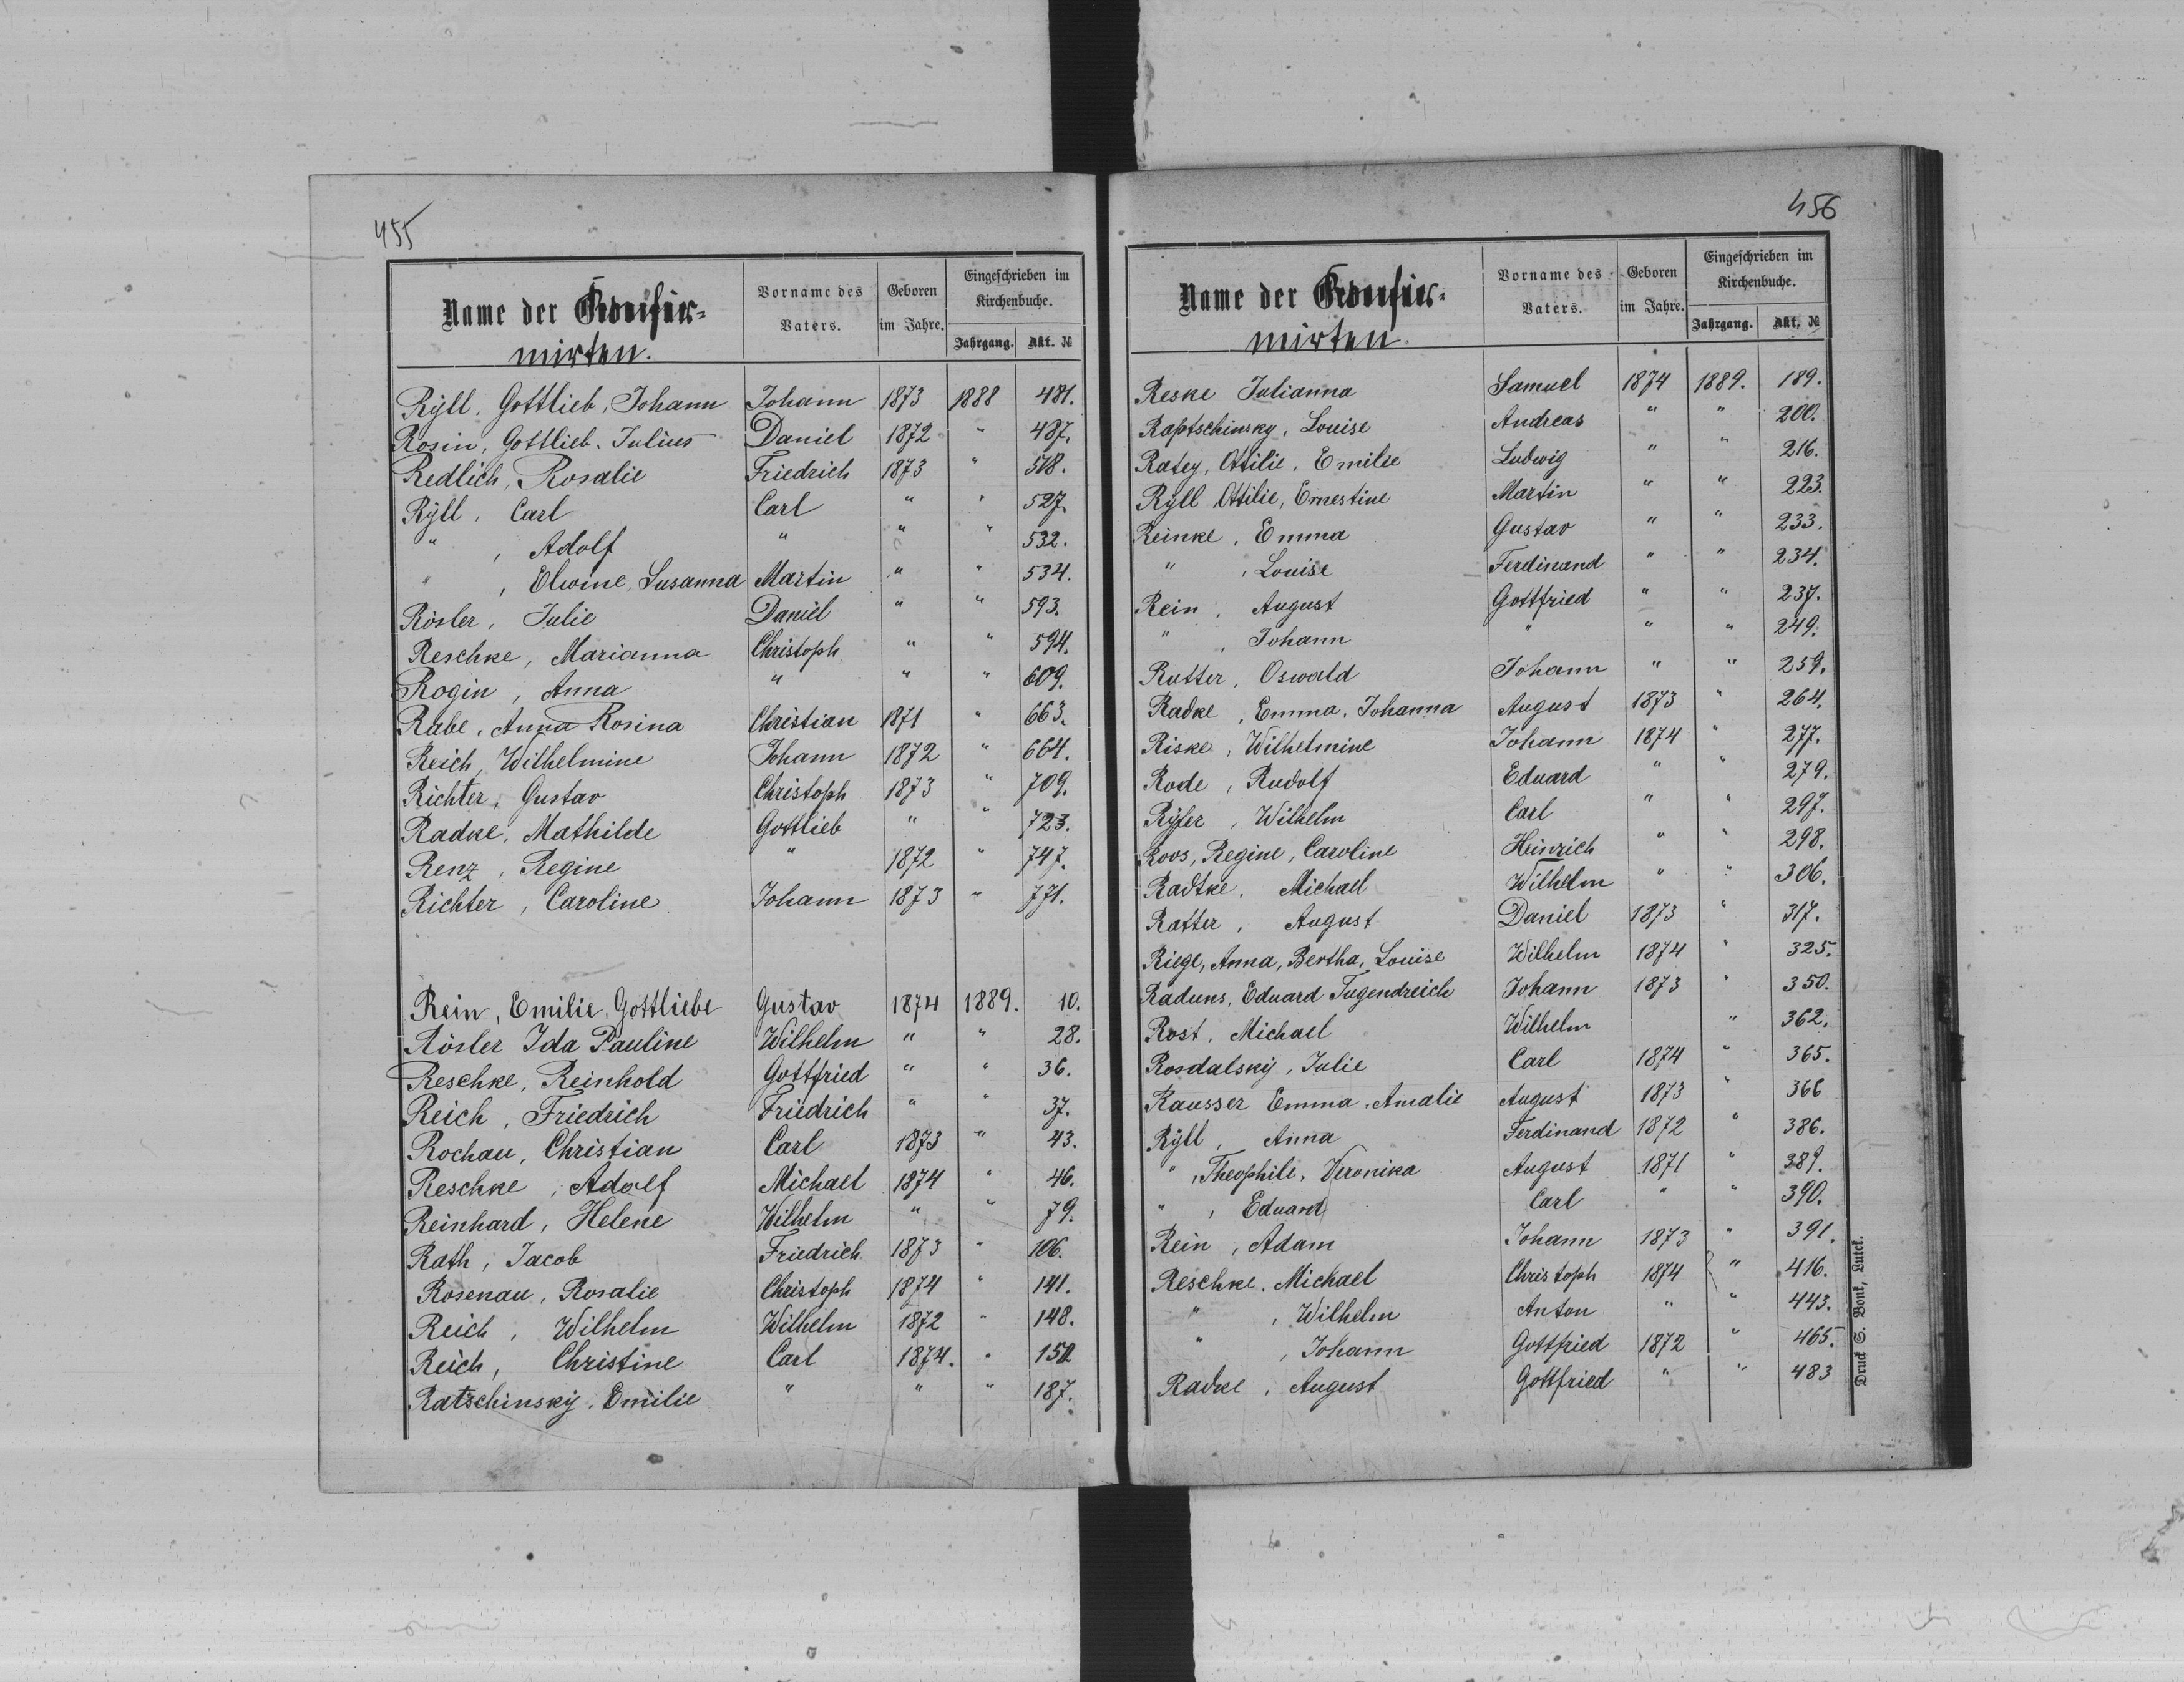 455
Name der Konfir=
mirten.
Vorname des Vaters.
Geboren im Jahre.
Eingeschrieben im Kirchenbuche.
Jahrgang. Akt. №
Ryll, Gottlieb, Johann Johann 1873 1888 481.
Rosin, Gottlieb, Julius Daniel 1872 " 487.
Redlich, Rosalie Friedrich 1873 " 518.
Ryll, Carl Carl " " 527.
" , Adolf " " " 532.
" , Elwine, Susanna Martin " " 534.
Rösler, Julie Daniel " " 593.
Reschke, Marianna Christoph " " 594.
Rogin, Anna " " " 609.
Rabe, Anna Rosina Christian 1871 " 663.
Reich, Wilhelmine Johann 1872 " 664.
Richter, Gustav Christoph 1873 " 709.
Radke, Mathilde Gottlieb " " 723.
Renz, Regine " 1872 " 747.
Richter, Caroline Johann 1873 " 771.
Rein, Emilie, Gottliebe Gustav 1874 1889. 10.
Rösler Ida Pauline Wilhelm " " 28.
Reschke, Reinhold Gottfried " " 36.
Reich, Friedrich Friedrich " " 37.
Rochau, Christian Carl 1873 " 43.
Reschke, Adolf Michael 1874 " 46.
Reinhard, Helene Wilhelm " " 79.
Rath, Jacob Friedrich 1873 " 106.
Rosenau, Rosalie Christoph 1874 " 141.
Reich, Wilhelm Wilhelm 1872 " 148.
Reich, Christine Carl 1874. "
Ratschinsky, Emilie " " " 187.
456
Name der Konfir=
mirten.
Vorname des Vaters.
Geboren im Jahre.
Eingeschrieben im Kirchenbuche.
Jahrgang. Akt. №
Reske Julianna Samuel 1874 1889. 189.
Raptschinsky, Louise Andreas " " 200.
Ratey, Ottilie, Emilie Ludwig " " 216.
Ryll Ottilie, Ernestine Martin " " 223.
Reinke, Emma Gustav " " 233.
" , Louise Ferdinand " " 234.
Rein, August Gottfried " " 237.
" , Johann " " " 249.
Rutter, Oswald Johann " " 259.
Radke, Emma, Johanna August 1873 " 264.
Riske, Wilhelmine Johann 1874 " 277.
Rode, Rudolf Eduard " " 279.
Wilhelm Carl " " 297.
Roos, Regine, Caroline Heinrich " " 298.
Radtke, Michael Wilhelm " " 306.
Ratter, August Daniel 1873 " 317.
Riege, Anna, Bertha, Louise Wilhelm 1874 " 325.
Raduns, Eduard Tugendreich Johann 1873 " 350.
Rost, Michael Wilhelm " 362.
Rosdalsky, Julie Carl 1874 " 365.
Rausser Emma, Amalie August 1873 " 366
Ryll, Anna Ferdinand 1872 " 386.
" , Theophile, Veronika August 1871 " 389.
" , Eduard Carl " " 390.
Rein, Adam Johann 1873 " 391.
Reschke, Michael Christoph 1874 " 416.
" , Wilhelm Anton " " 443.
" , Johann Gottfried 1872 " 465.
Radke, August Gottfried " " 483
Druck S. Bonk, Lutck.